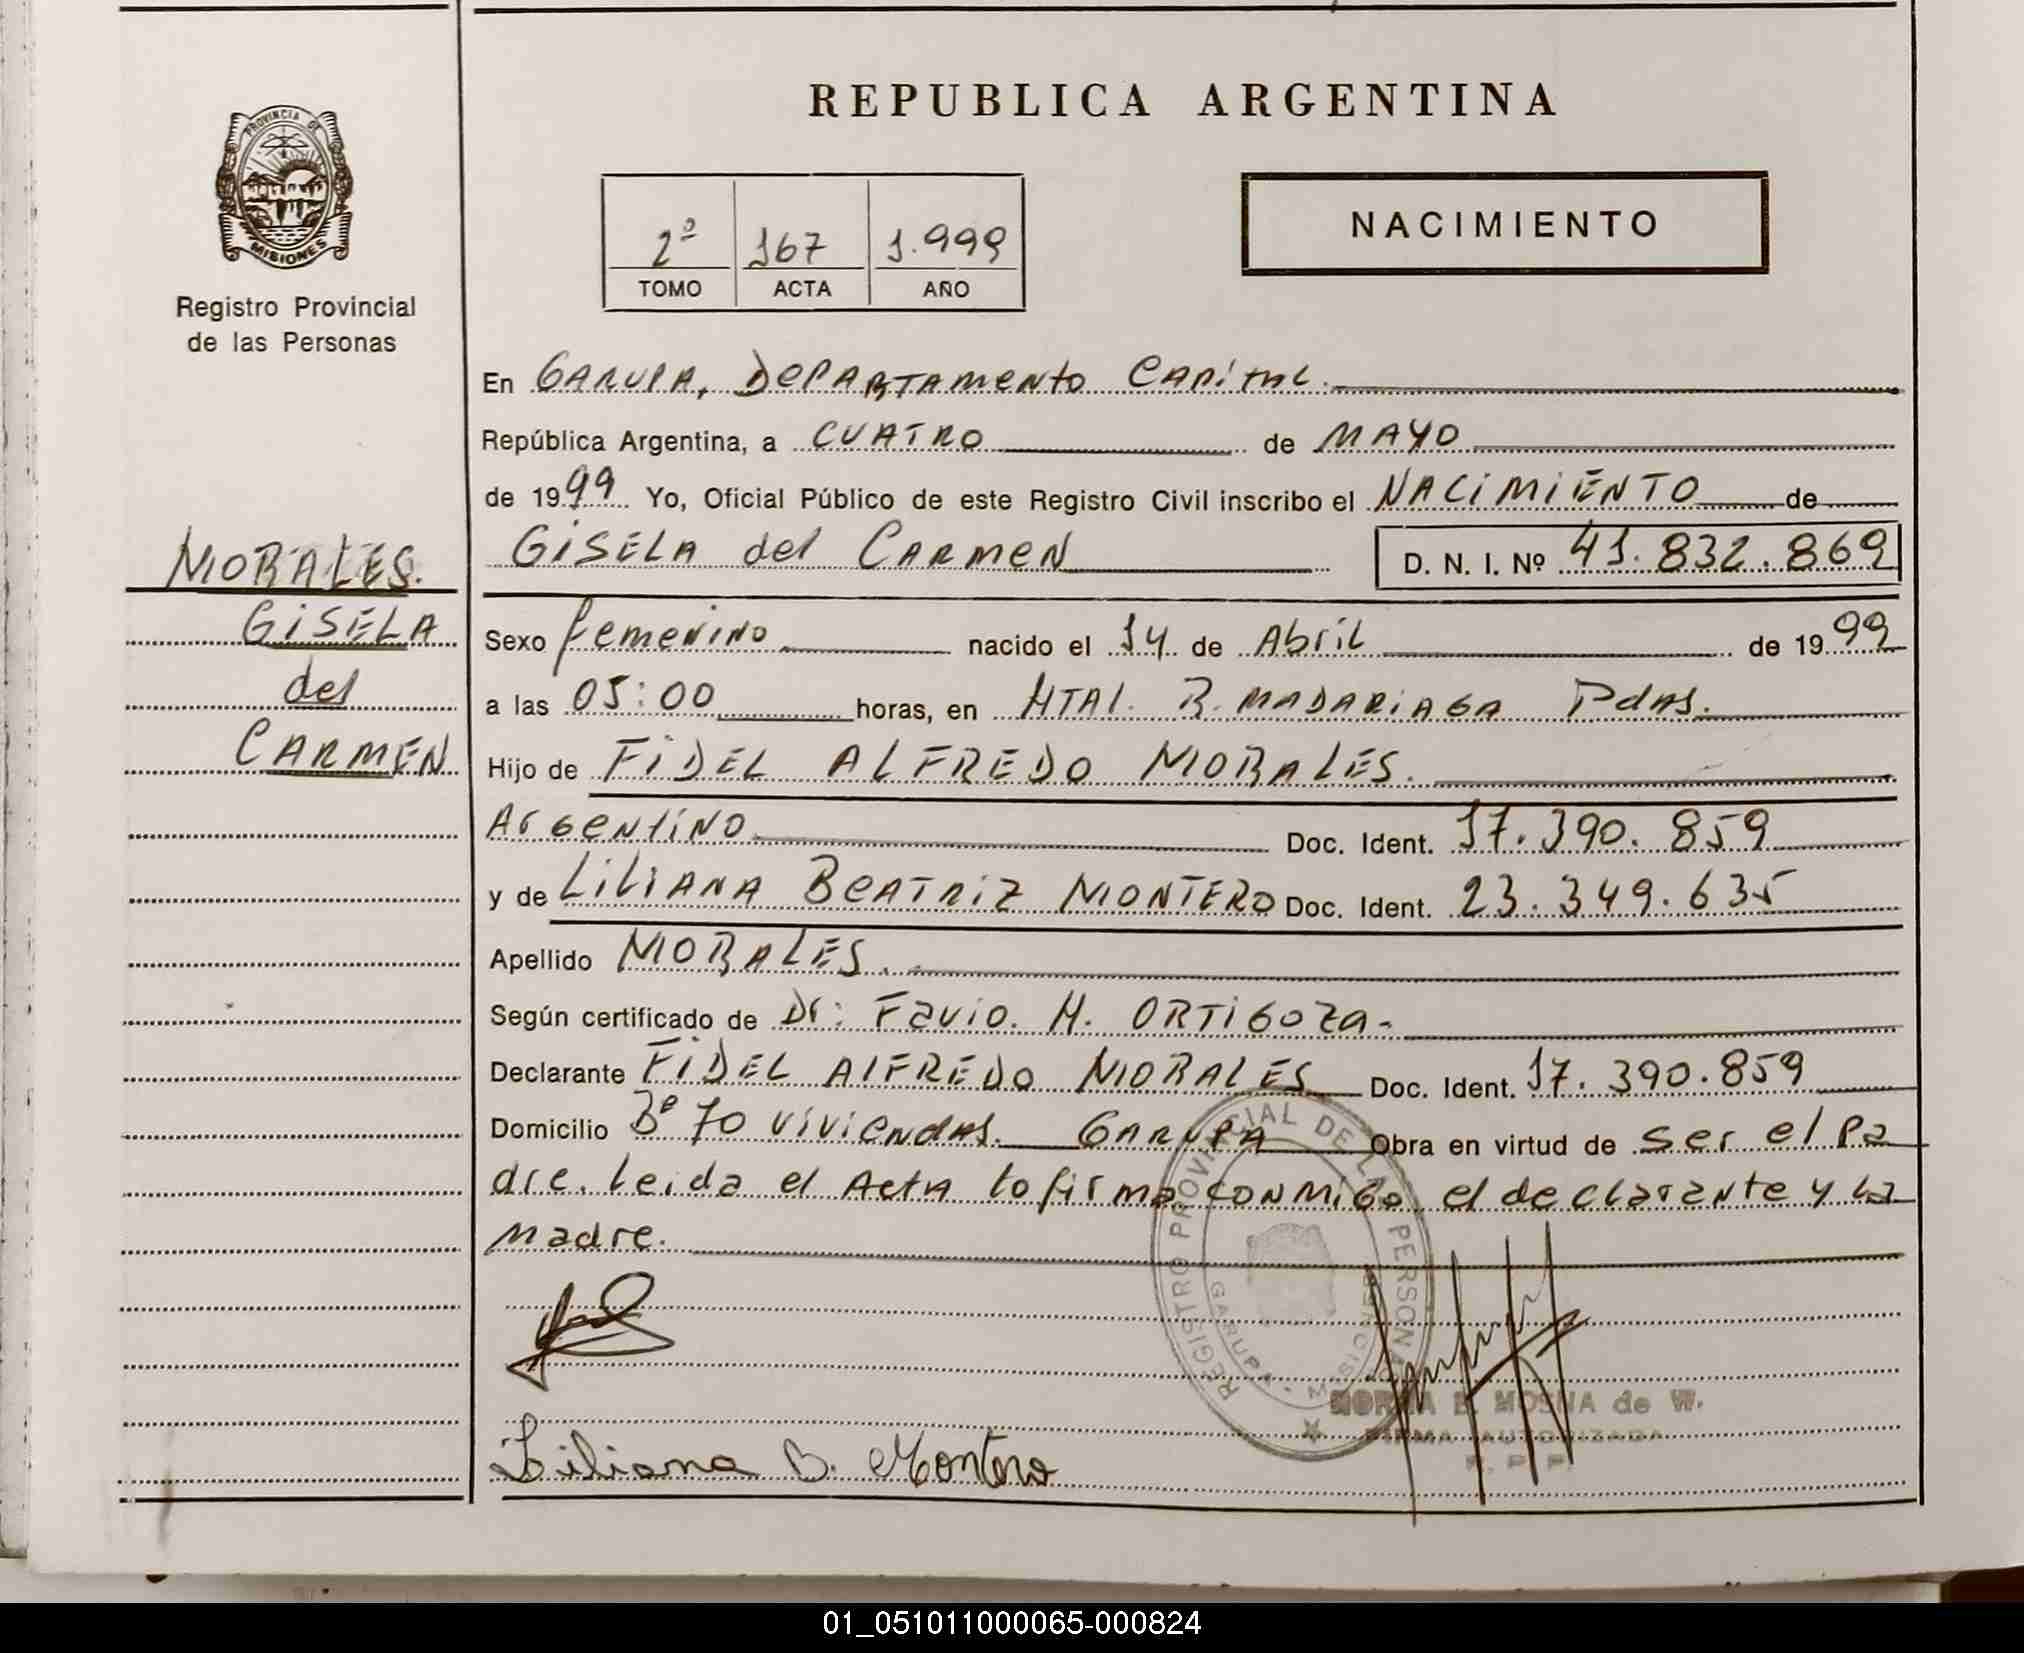 REPUBLICA ARGENTINA
PROVINCIA DE
MISIONES
Registro Provincial
de las Personas
2º 167 1.999
TOMO ACTA AÑO
NACIMIENTO
En GARUPA, DEPARTAMENTO CAPITAL.
República Argentina, a CUATRO de MAYO
de 1999 Yo, Oficial Público de este Registro Civil inscribo el NACIMIENTO de
GISELA del CARMEN D. N. I. Nº 41.832.869
MORALES.
GISELA
del
CARMEN
Sexo femenino nacido el 14 de Abril de 1999
a las 05:00 horas, en HTAL. R. MADARIAGA Pdas.
Hijo de FIDEL ALFREDO MORALES.
Argentino Doc. Ident. 17.390.859
y de LILIANA BEATRIZ MONTERO Doc. Ident. 23.349.635
Apellido MORALES.
Según certificado de Dr: Favio. H. ORTIGOZA.
Declarante FIDEL ALFREDO MORALES Doc. Ident. 17.390.859
Domicilio Bº 70 viviendas. GARUPA Obra en virtud de ser el Pa
dre. Leida el Acta lo firma conmigo el declarante y la
madre.
REGISTRO PROVINCIAL DE LAS PERSONAS
GARUPA - MISIONES
NORMA B. MOSNA de W.
FIRMA AUTORIZADA
R. P. P.
Liliana B. Montero
01_051011000065-000824